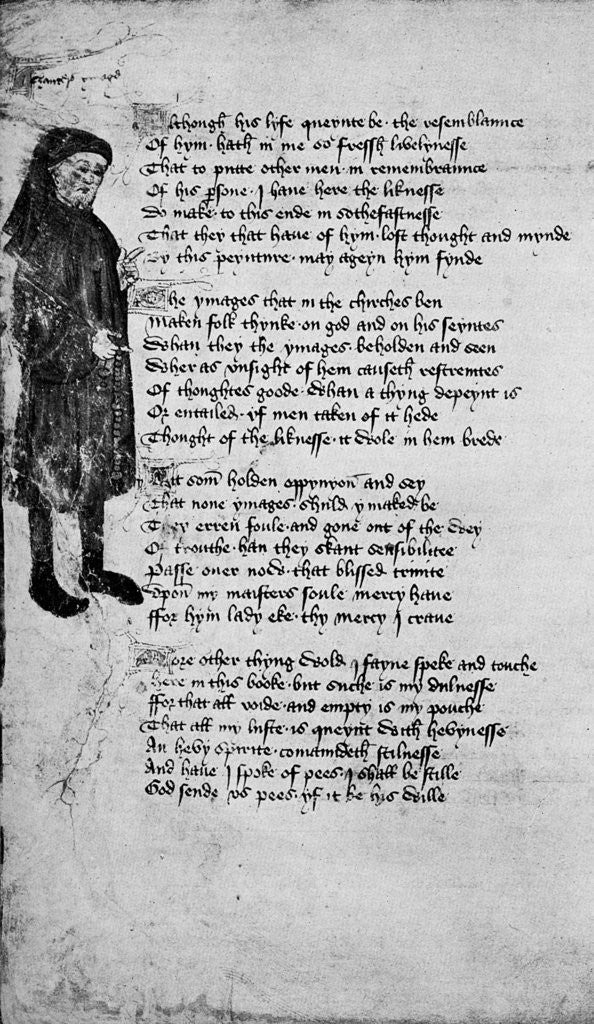 Chaucers ymage
Although his lyfe queynte be the resemblaunce
Of hym hath in me so fressh lyvelynesse
That to putte other men in remembraunce
Of his persone I have here the liknesse
Do make to this ende in sothefastnesse
That they that have of hym lost thought and mynde
By this peynture may ageyn hym fynde
The ymages that in the chirches ben
Maken folk thynke on god and on his seyntes
Whan they the ymages beholden and seen
Wher as unsight of hem causeth restreyntes
Of thoughtes goode whan a thyng depeynt is
Or entailed yf men taken of it hede
Thought of the liknesse it wole in hem brede
But som holden oppynyon and sey
That none ymages shuld y maked be
They erren foule and gone out of the wey
Of trouthe han they skant sensibilitee
Passe over now that blissed trinite
Upon my maisters soule mercy have
ffor hym lady eke thy mercy I crave
More other thyng wold I fayne speke and touche
here in this booke but suche is my dulnesse
ffor that all voide and empty is my pouche
That all my luste is queynt with hevynesse
An hevy spirite comaundeth stilnesse
And have I spoke of pees I shall be stille
God sende us pees yf it be his wille